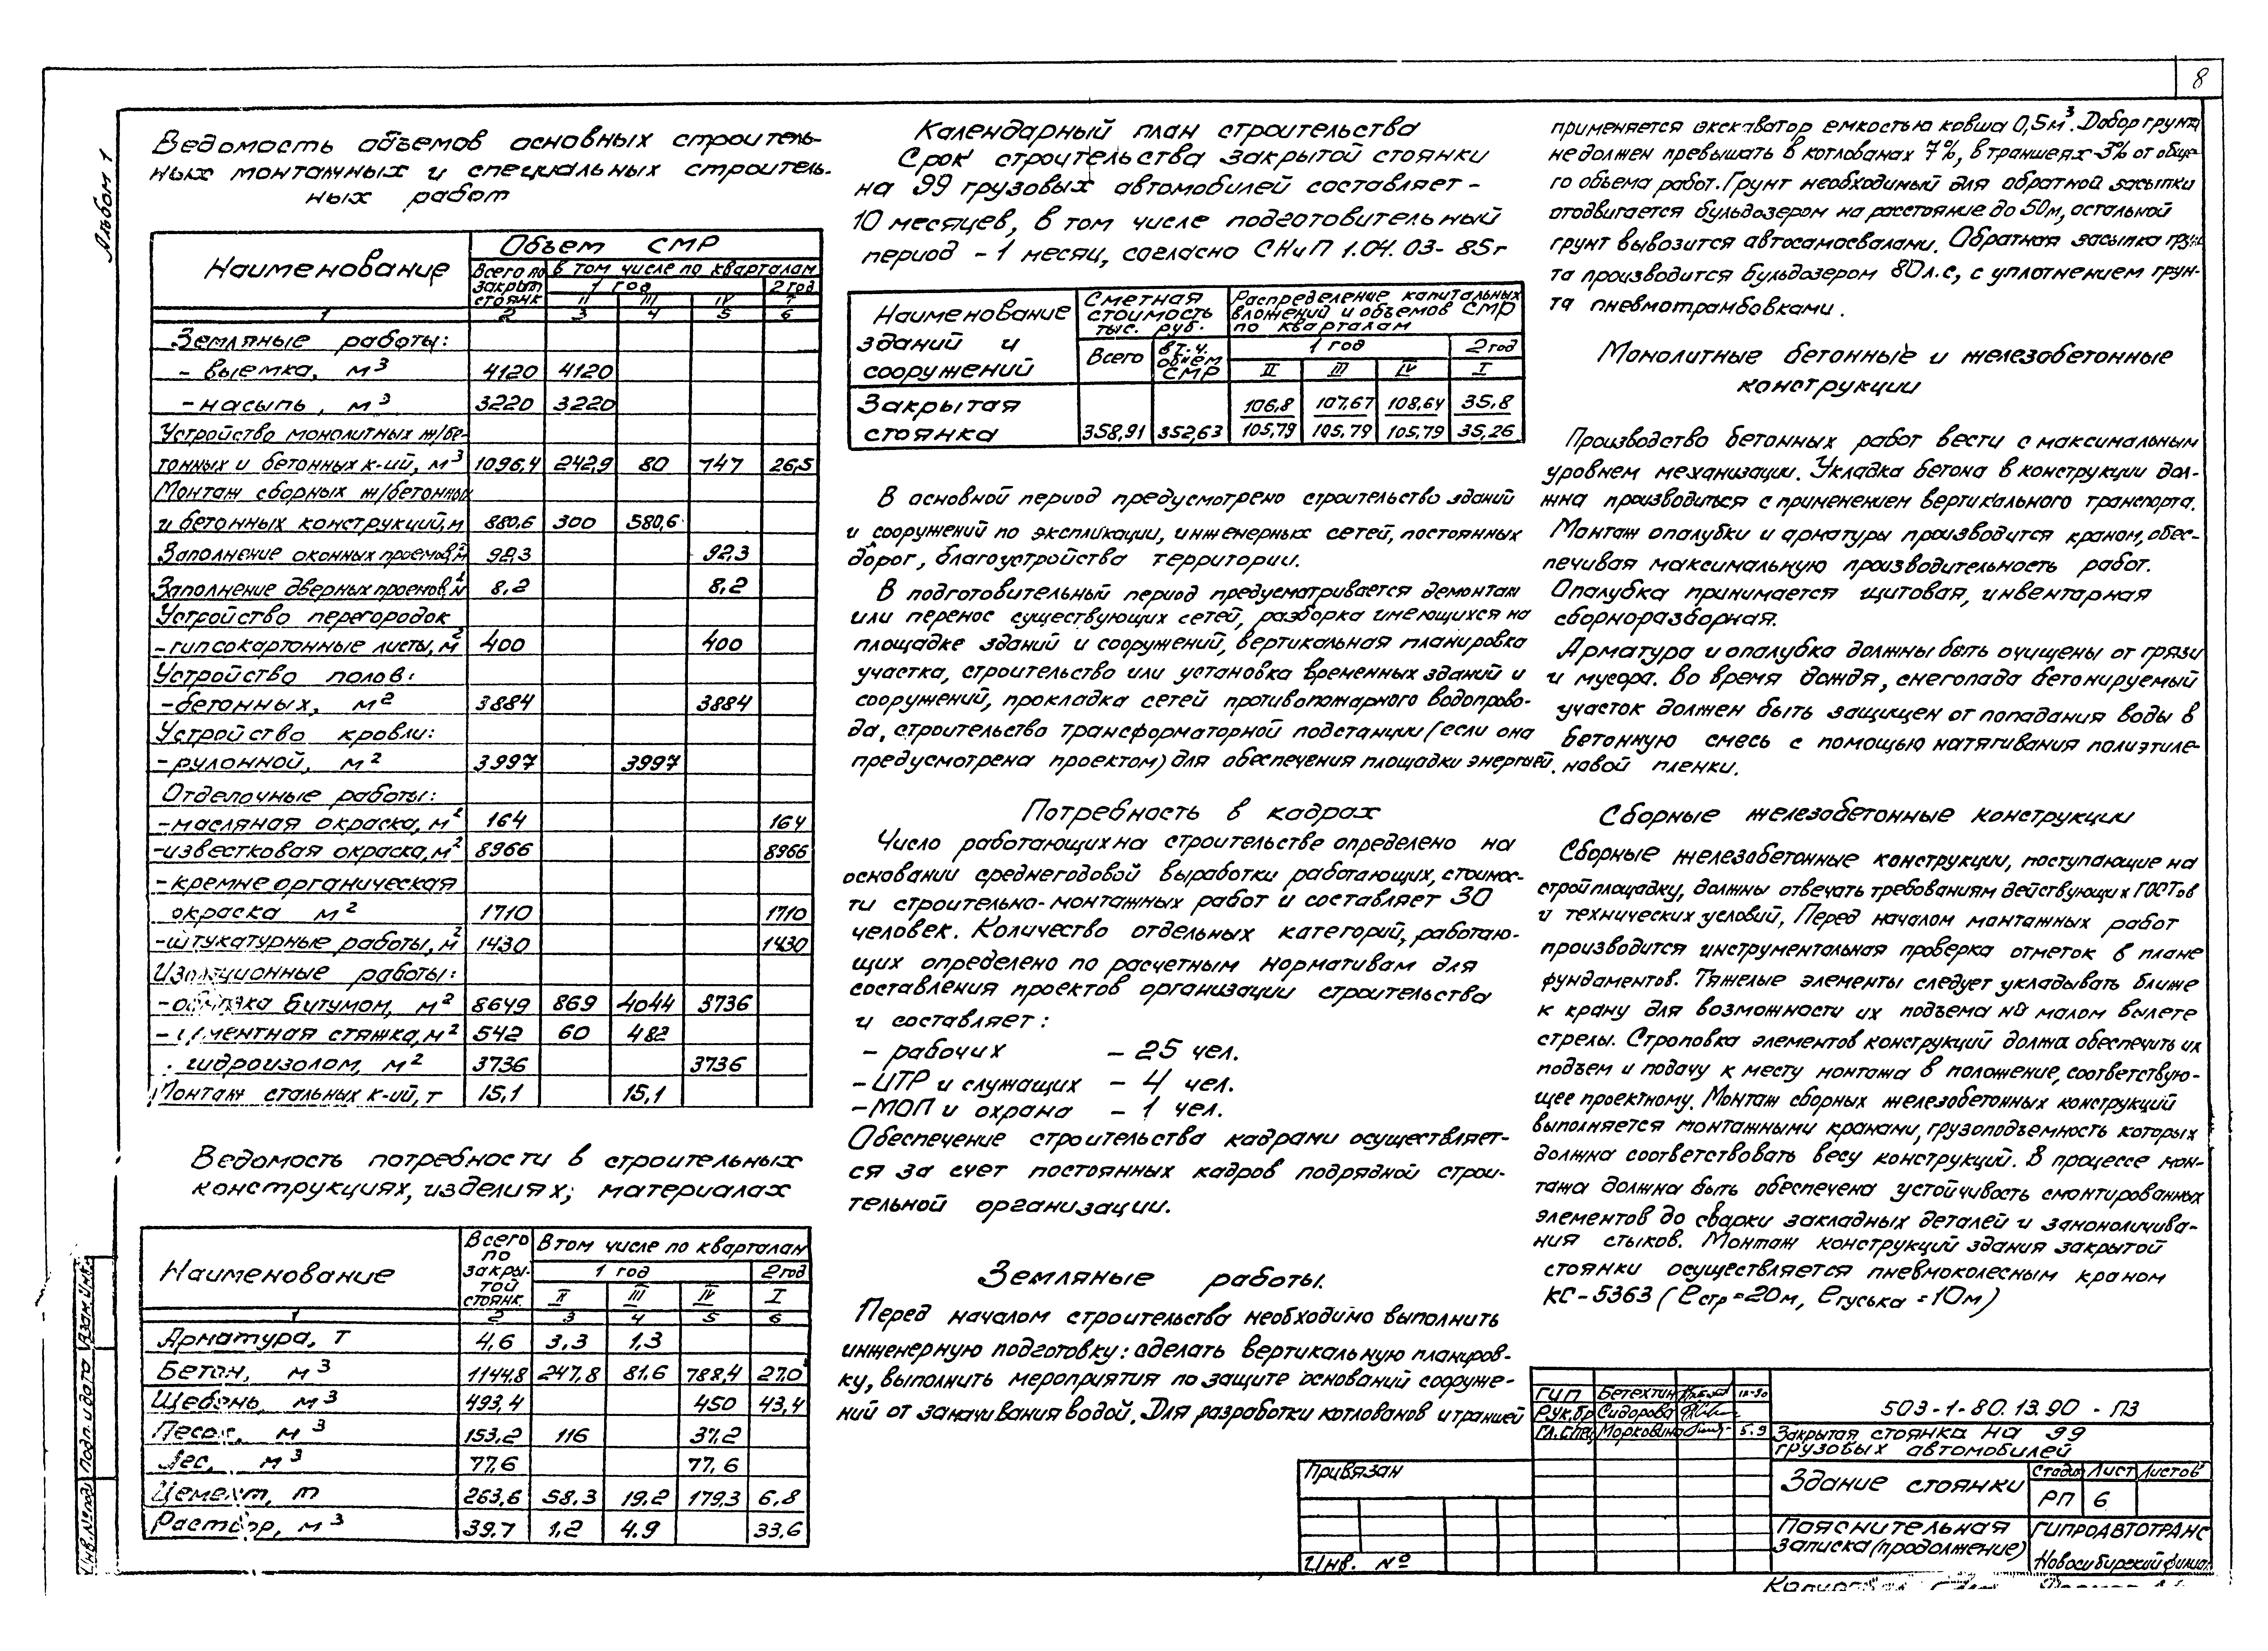 8
Альбом 1
Ведомость объемов основных строитель-
ных монтажных и специальных строитель-
ных работ
Наименование | Объем СМР
Всего по закрыт стоянк | в том числе по кварталам
1 год | 2 год
II | III | IV | I
1 | 2 | 3 | 4 | 5 | 6
Земляные работы:
- выемка, м3 | 4120 | 4120
- насыпь, м3 | 3220 | 3220
Устройство монолитных ж/бе-
тонных и бетонных к-ий, м3 | 1096,4 | 242,9 | 80 | 747 | 26,5
Монтаж сборных ж/бетонных
и бетонных конструкций, м | 880,6 | 300 | 580,6
Заполнение оконных проемов, м2 | 92,3 | 92,3
Заполнение дверных проемов, м2 | 8,2 | 8,2
Устройство перегородок
- гипсокартонные листы, м2 | 400 | 400
Устройство полов:
- бетонных, м2 | 3884 | 3884
Устройство кровли:
- рулонной, м2 | 3997 | 3997
Отделочные работы:
- масляная окраска, м2 | 164 | 164
- известковая окраска, м2 | 8966 | 8966
- кремнеорганическая
окраска м2 | 1710 | 1710
- штукатурные работы, м2 | 1430 | 1430
Изоляционные работы:
- обмазка битумом, м2 | 8649 | 869 | 4044 | 3736
- цементная стяжка, м2 | 542 | 60 | 482
гидроизолом, м2 | 3736 | 3736
Монтаж стальных к-ий, т | 15,1 | 15,1
Ведомость потребности в строительных
конструкциях, изделиях, материалах
Наименование | Всего по закрытой стоянк. | В том числе по кварталам
1 год | 2 год
II | III | IV | I
1 | 2 | 3 | 4 | 5 | 6
Арматура, т | 4,6 | 3,3 | 1,3
Бетон, м3 | 1144,8 | 247,8 | 81,6 | 788,4 | 27,0
Щебень, м3 | 493,4 | 450 | 43,4
Песок, м3 | 153,2 | 116 | 37,2
Лес, м3 | 77,6 | 77,6
Цемент, т | 263,6 | 58,3 | 19,2 | 179,3 | 6,8
Раствор, м3 | 39,7 | 1,2 | 4,9 | 33,6
Календарный план строительства
Срок строительства закрытой стоянки
на 99 грузовых автомобилей составляет -
10 месяцев, в том числе подготовительный
период - 1 месяц, согласно СНиП 1.04.03-85г
Наименование зданий и сооружений | Сметная стоимость тыс. руб. | Распределение капитальных вложений и объемов СМР по кварталам
Всего | в т.ч. объем СМР | 1 год | 2 год
II | III | IV | I
Закрытая | 106,8 | 107,67 | 108,64 | 35,8
стоянка | 358,91 | 352,63 | 105,79 | 105,79 | 105,79 | 35,26
В основной период предусмотрено строительство зданий
и сооружений по экспликации, инженерных сетей, постоянных
дорог, благоустройства территории.
В подготовительный период предусматривается демонтаж
или перенос существующих сетей, разборка имеющихся на
площадке зданий и сооружений, вертикальная планировка
участка, строительство или установка временных зданий и
сооружений, прокладка сетей противопожарного водопрово-
да, строительство трансформаторной подстанции (если она
предусмотрена проектом) для обеспечения площадки энергией.
Потребность в кадрах
Число работающих на строительстве определено на
основании среднегодовой выработки работающих, стоимос-
ти строительно-монтажных работ и составляет 30
человек. Количество отдельных категорий, работаю-
щих определено по расчетным нормативам для
составления проектов организации строительства
и составляет:
- рабочих - 25 чел.
- ИТР и служащих - 4 чел.
- МОП и охрана - 1 чел.
Обеспечение строительства кадрами осуществляет-
ся за счет постоянных кадров подрядной строи-
тельной организации.
Земляные работы.
Перед началом строительства необходимо выполнить
инженерную подготовку: сделать вертикальную планиров-
ку, выполнить мероприятия по защите оснований сооруже-
ний от замачивания водой. Для разработки котлованов и траншей
применяется экскаватор емкостью ковша 0,5м3. Добор грунта
не должен превышать в котлованах 7%, в траншеях-3% от обще-
го объема работ. Грунт необходимый для обратной засыпки
отодвигается бульдозером на расстояние до 50м, остальной
грунт вывозится автосамосвалами. Обратная засыпка грун-
та производится бульдозером 80л.с, с уплотнением грун-
та пневмотрамбовками.
Монолитные бетонные и железобетонные
конструкции
Производство бетонных работ вести с максимальным
уровнем механизации. Укладка бетона в конструкции дол-
жна производиться с применением вертикального транспорта.
Монтаж опалубки и арматуры производится краном, обес-
печивая максимальную производительность работ.
Опалубка принимается щитовая, инвентарная
сборноразборная.
Арматура и опалубка должны быть очищены от грязи
и мусора. Во время дождя, снегопада бетонируемый
участок должен быть защищен от попадания воды в
бетонную смесь с помощью натягивания полиэтиле-
новой пленки.
Сборные железобетонные конструкции
Сборные железобетонные конструкции, поступающие на
стройплощадку, должны отвечать требованиям действующих ГОСТов
и технических условий. Перед началом монтажных работ
производится инструментальная проверка отметок в плане
фундаментов. Тяжелые элементы следует укладывать ближе
к крану для возможности их подъема на малом вылете
стрелы. Строповка элементов конструкций должна обеспечить их
подъем и подачу к месту монтажа в положение, соответствую-
щее проектному. Монтаж сборных железобетонных конструкций
выполняется монтажными кранами, грузоподъемность которых
должна соответствовать весу конструкций. В процессе мон-
тажа должна быть обеспечена устойчивость смонтированных
элементов до сварки закладных деталей и замоноличива-
ния стыков. Монтаж конструкций здания закрытой
стоянки осуществляется пневмоколесным краном
КС-5363 (ℓстр=20м, ℓгуська=10м)
ГИП | Бетехтин | IX-90
Рук.бр | Сидорова
Гл.спец | Морковина | 5.9
503-1-80.13.90 - ПЗ
Закрытая стоянка на 99
грузовых автомобилей
Здание стоянки | Стадия | Лист | Листов
РП | 6
Пояснительная
записка (продолжение)
ГИПРОАВТОТРАНС
Новосибирский филиал
Привязан
Инв. №
Инв.№подл | Подп. и дата | Взам.инв.